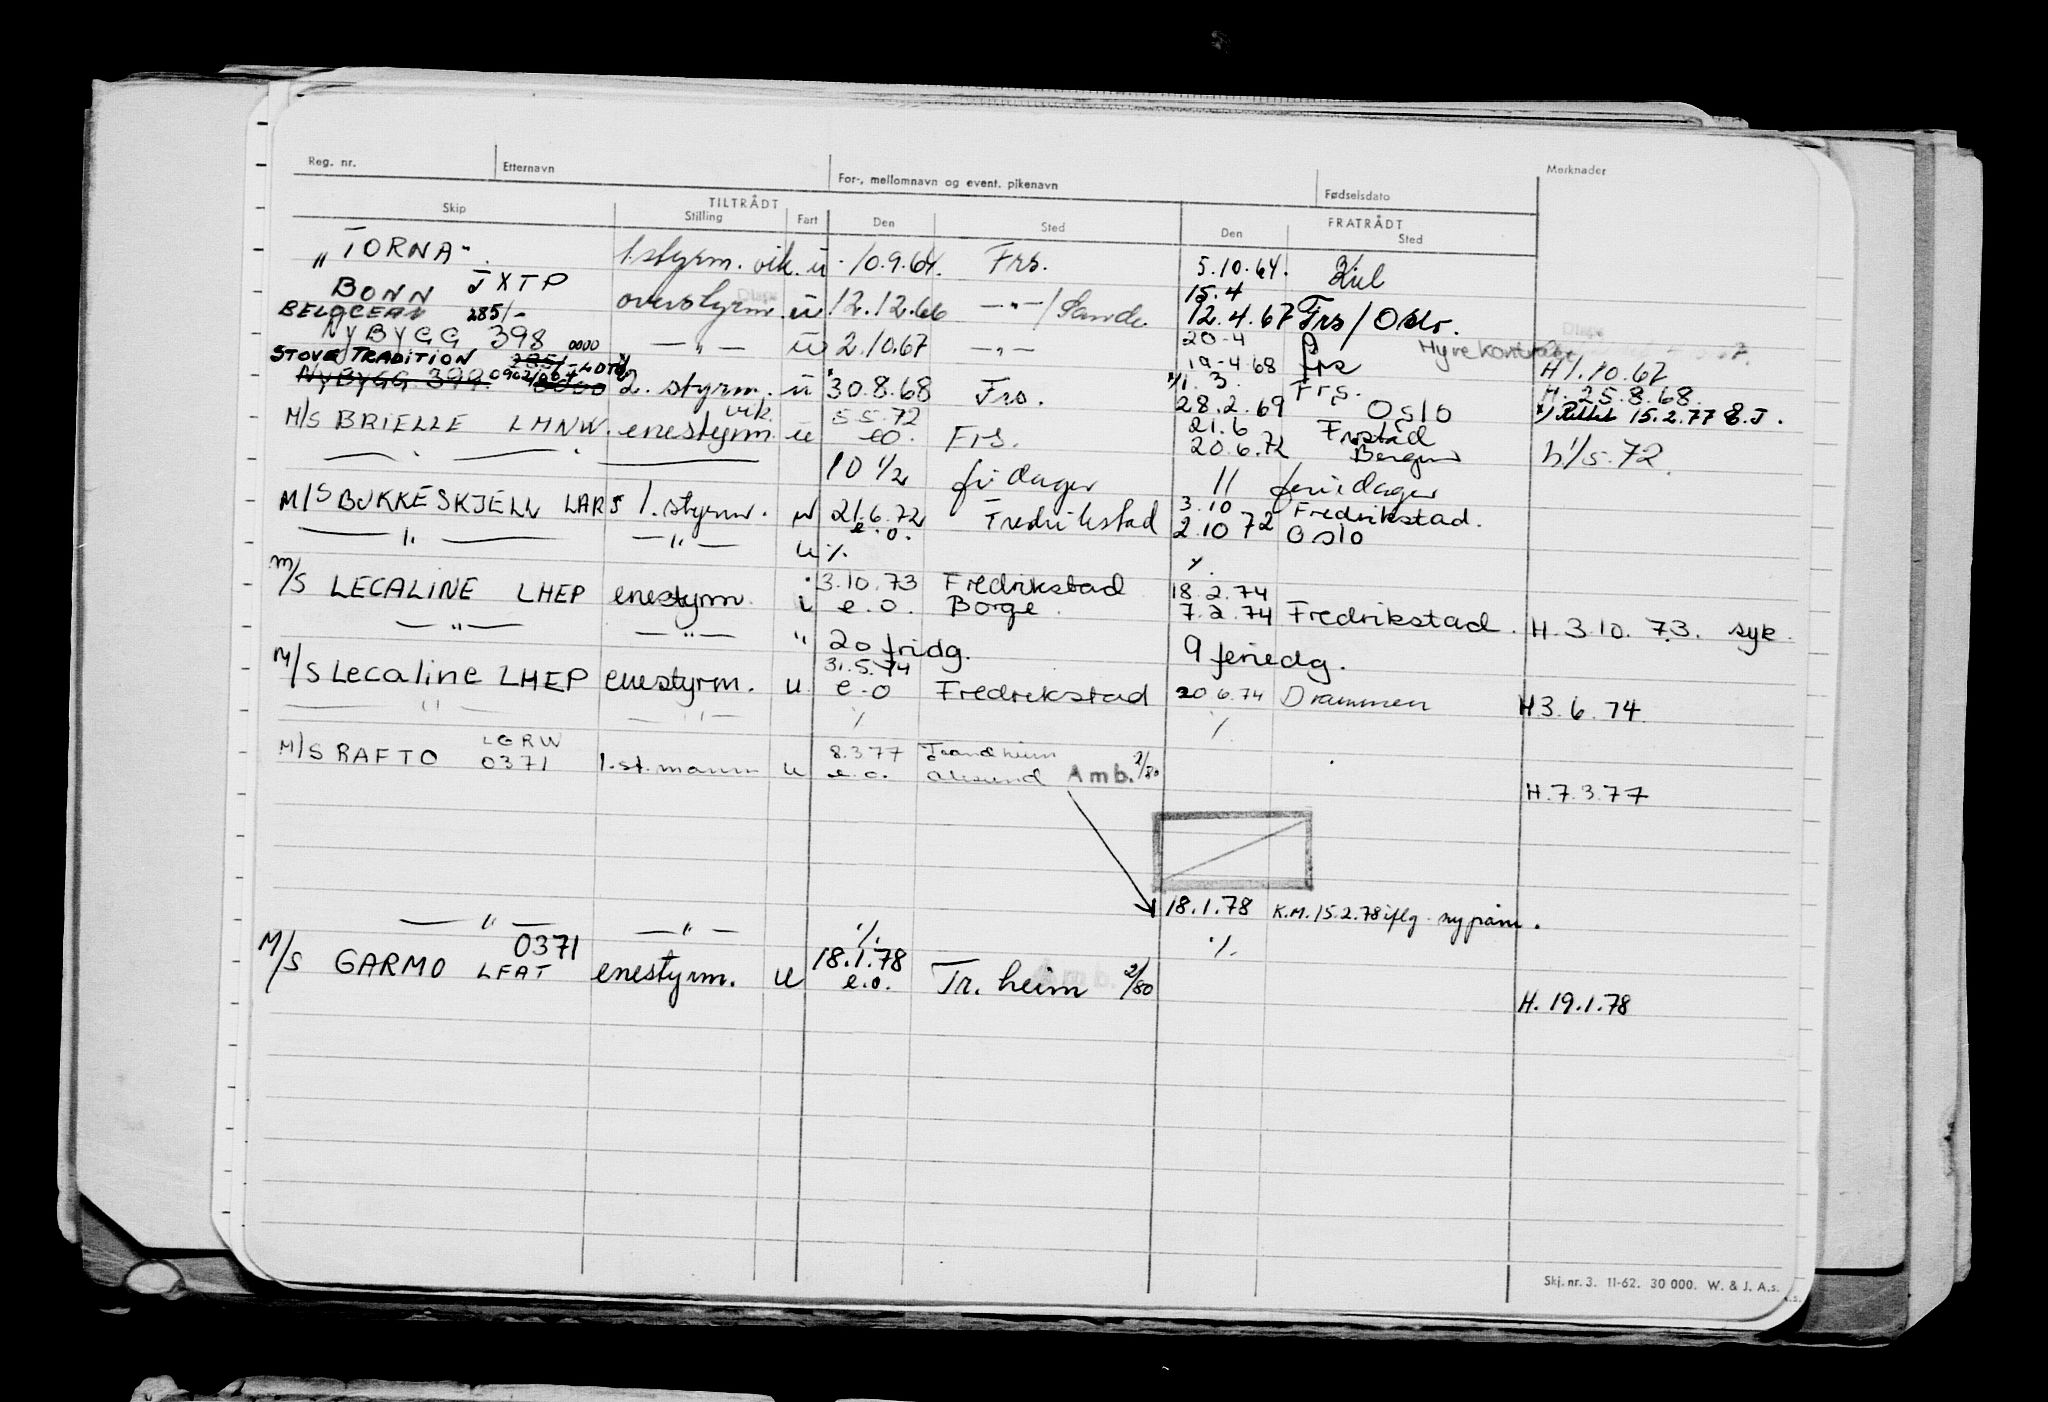 Reg. nr. Etternavn For-, mellomnavn og event. pikenavn Fødselsdato Merknader
TILTRÅDT FRATRÅDT
Skip Stilling Fart Den Sted Den Sted
„TORNA" 1.styrm. vik. u 10.9.64. Frs. 5.10.64. Kiel
BONN JXTP overstyrm. u 12.12.66 —"—/Sande 15.4
12.4.67 Frs/Oslo.
BELOCEAN 285/-
NYBYGG 398 0000 —"— u 2.10.67 —"— 20-4
19-4-68 frs Hyrekontrakt H 1.10.67
STOVE TRADITION
NYBYGG 399. 0000 2. styrm. u 30.8.68 Frs. 1. 3. Frs.
28.2.69 Oslo H. 25.8.68.
Rettet 15.2.77 E.J.
M/S BRIELLE LMNW. enestyrm. vik. u 5.5.72
e.o. Frs. 21.6 Frstad
20.6.72 Bergen h 1/5.72.
—"— 10 1/2 fridager 11 feriedager
M/S BUKKESKJELL LARS 1. styrm. u 21.6.72
e.o. Fredrikstad 3.10 Fredrikstad.
2.10 72 Oslo
—"— —"— u ./.
M/S LECALINE LHEP enestyrm. i 3.10.73 Fredrikstad 18.2.74
e.o. Borge. 7.2.74 Fredrikstad. H. 3.10.73. syk.
—"— —"— " 20 fridg. 9 feriedg.
M/S Lecaline LHEP enestyrm. u 31.5.74
e.o Fredrikstad 20.6.74 Drammen H 3.6.74.
—"— —"— ./. ./.
M/S RAFTO LGRW
0371 1.st.mann u 8.3.77 Trondheim
e.o. Ålesund Amb. 2/80
H.7.3.77
18.1.78 K.M. 15.2.78 iflg. ny påm.
—"— —"— ./. ./.
M/S GARMO 0371
LFAT enestyrm. u 18.1.78
e.o. Tr.heim Amb. 2/80
H. 19.1.78
Skj. nr. 3. 11-62. 30 000. W. & J. A.s.